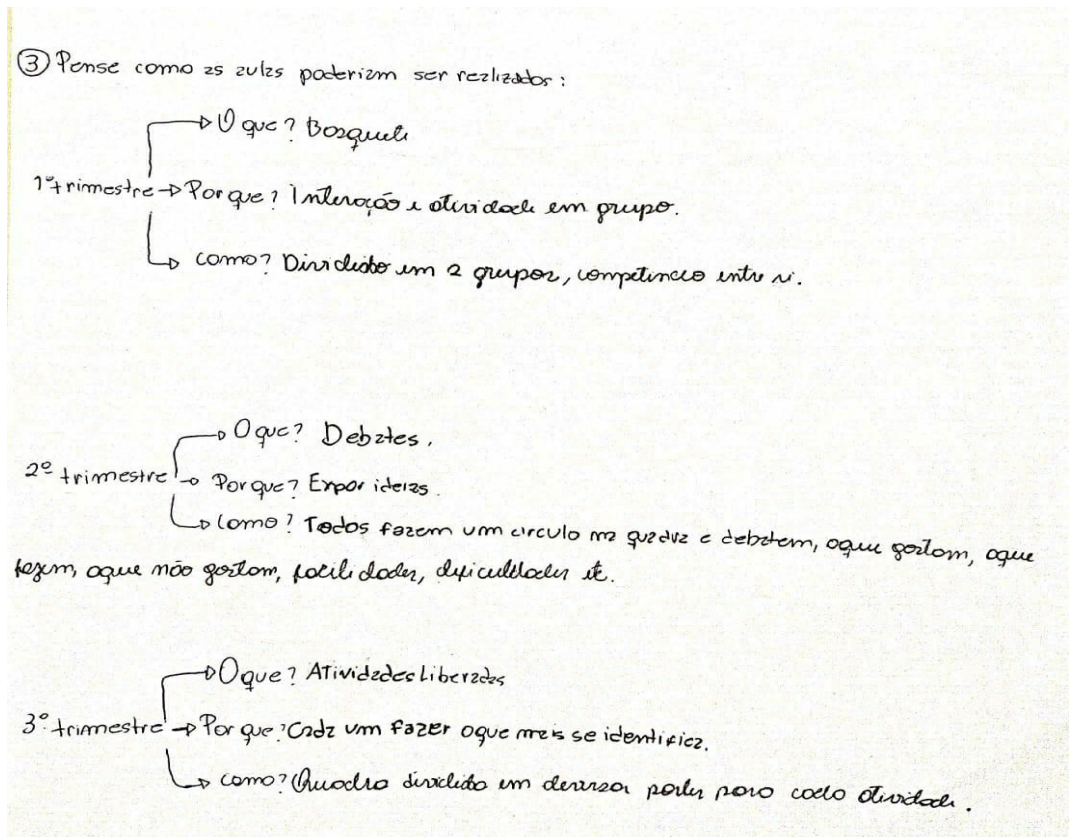 ③ Pense como as aulas poderiam ser realizadas:
O que? Basquete
1º trimestre → Por que? Interação e atividade em grupo.
como? Dividido em 2 grupos, competindo entre si.
O que? Debates.
2º trimestre → Por que? Expor ideias.
Como? Todos fazem um circulo na quadra e debatem, oque gostam, oque
fazem, oque não gostam, facilidades, dificuldades etc.
O que? Atividades Liberadas
3º trimestre → Por que? Cada um fazer oque mais se identifica.
como? Quadra dividida em diversas partes para cada atividade.